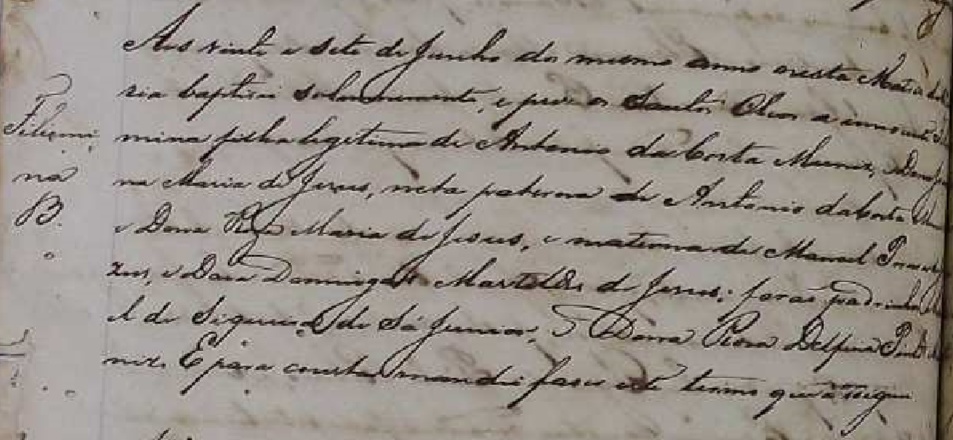 Aos vinte e sete de Junho do mesmo anno nesta Matriz
ria baptisei solemnemente, e puz os Santos Oleos a innocente
Filismi
mina filha legitima de Antonio da Costa Muniz, e Dona
na
na Maria de Jesus, neta paterna de Antonio da Costa
B.
e Dona Maria de Jesus, e materna de Manoel
e Dona Domingas de Jesus; forão padrinhos
el de Siqueira de Sá Junior, e Dona Delfina
niz. E para constar mandei faser este termo que assigno